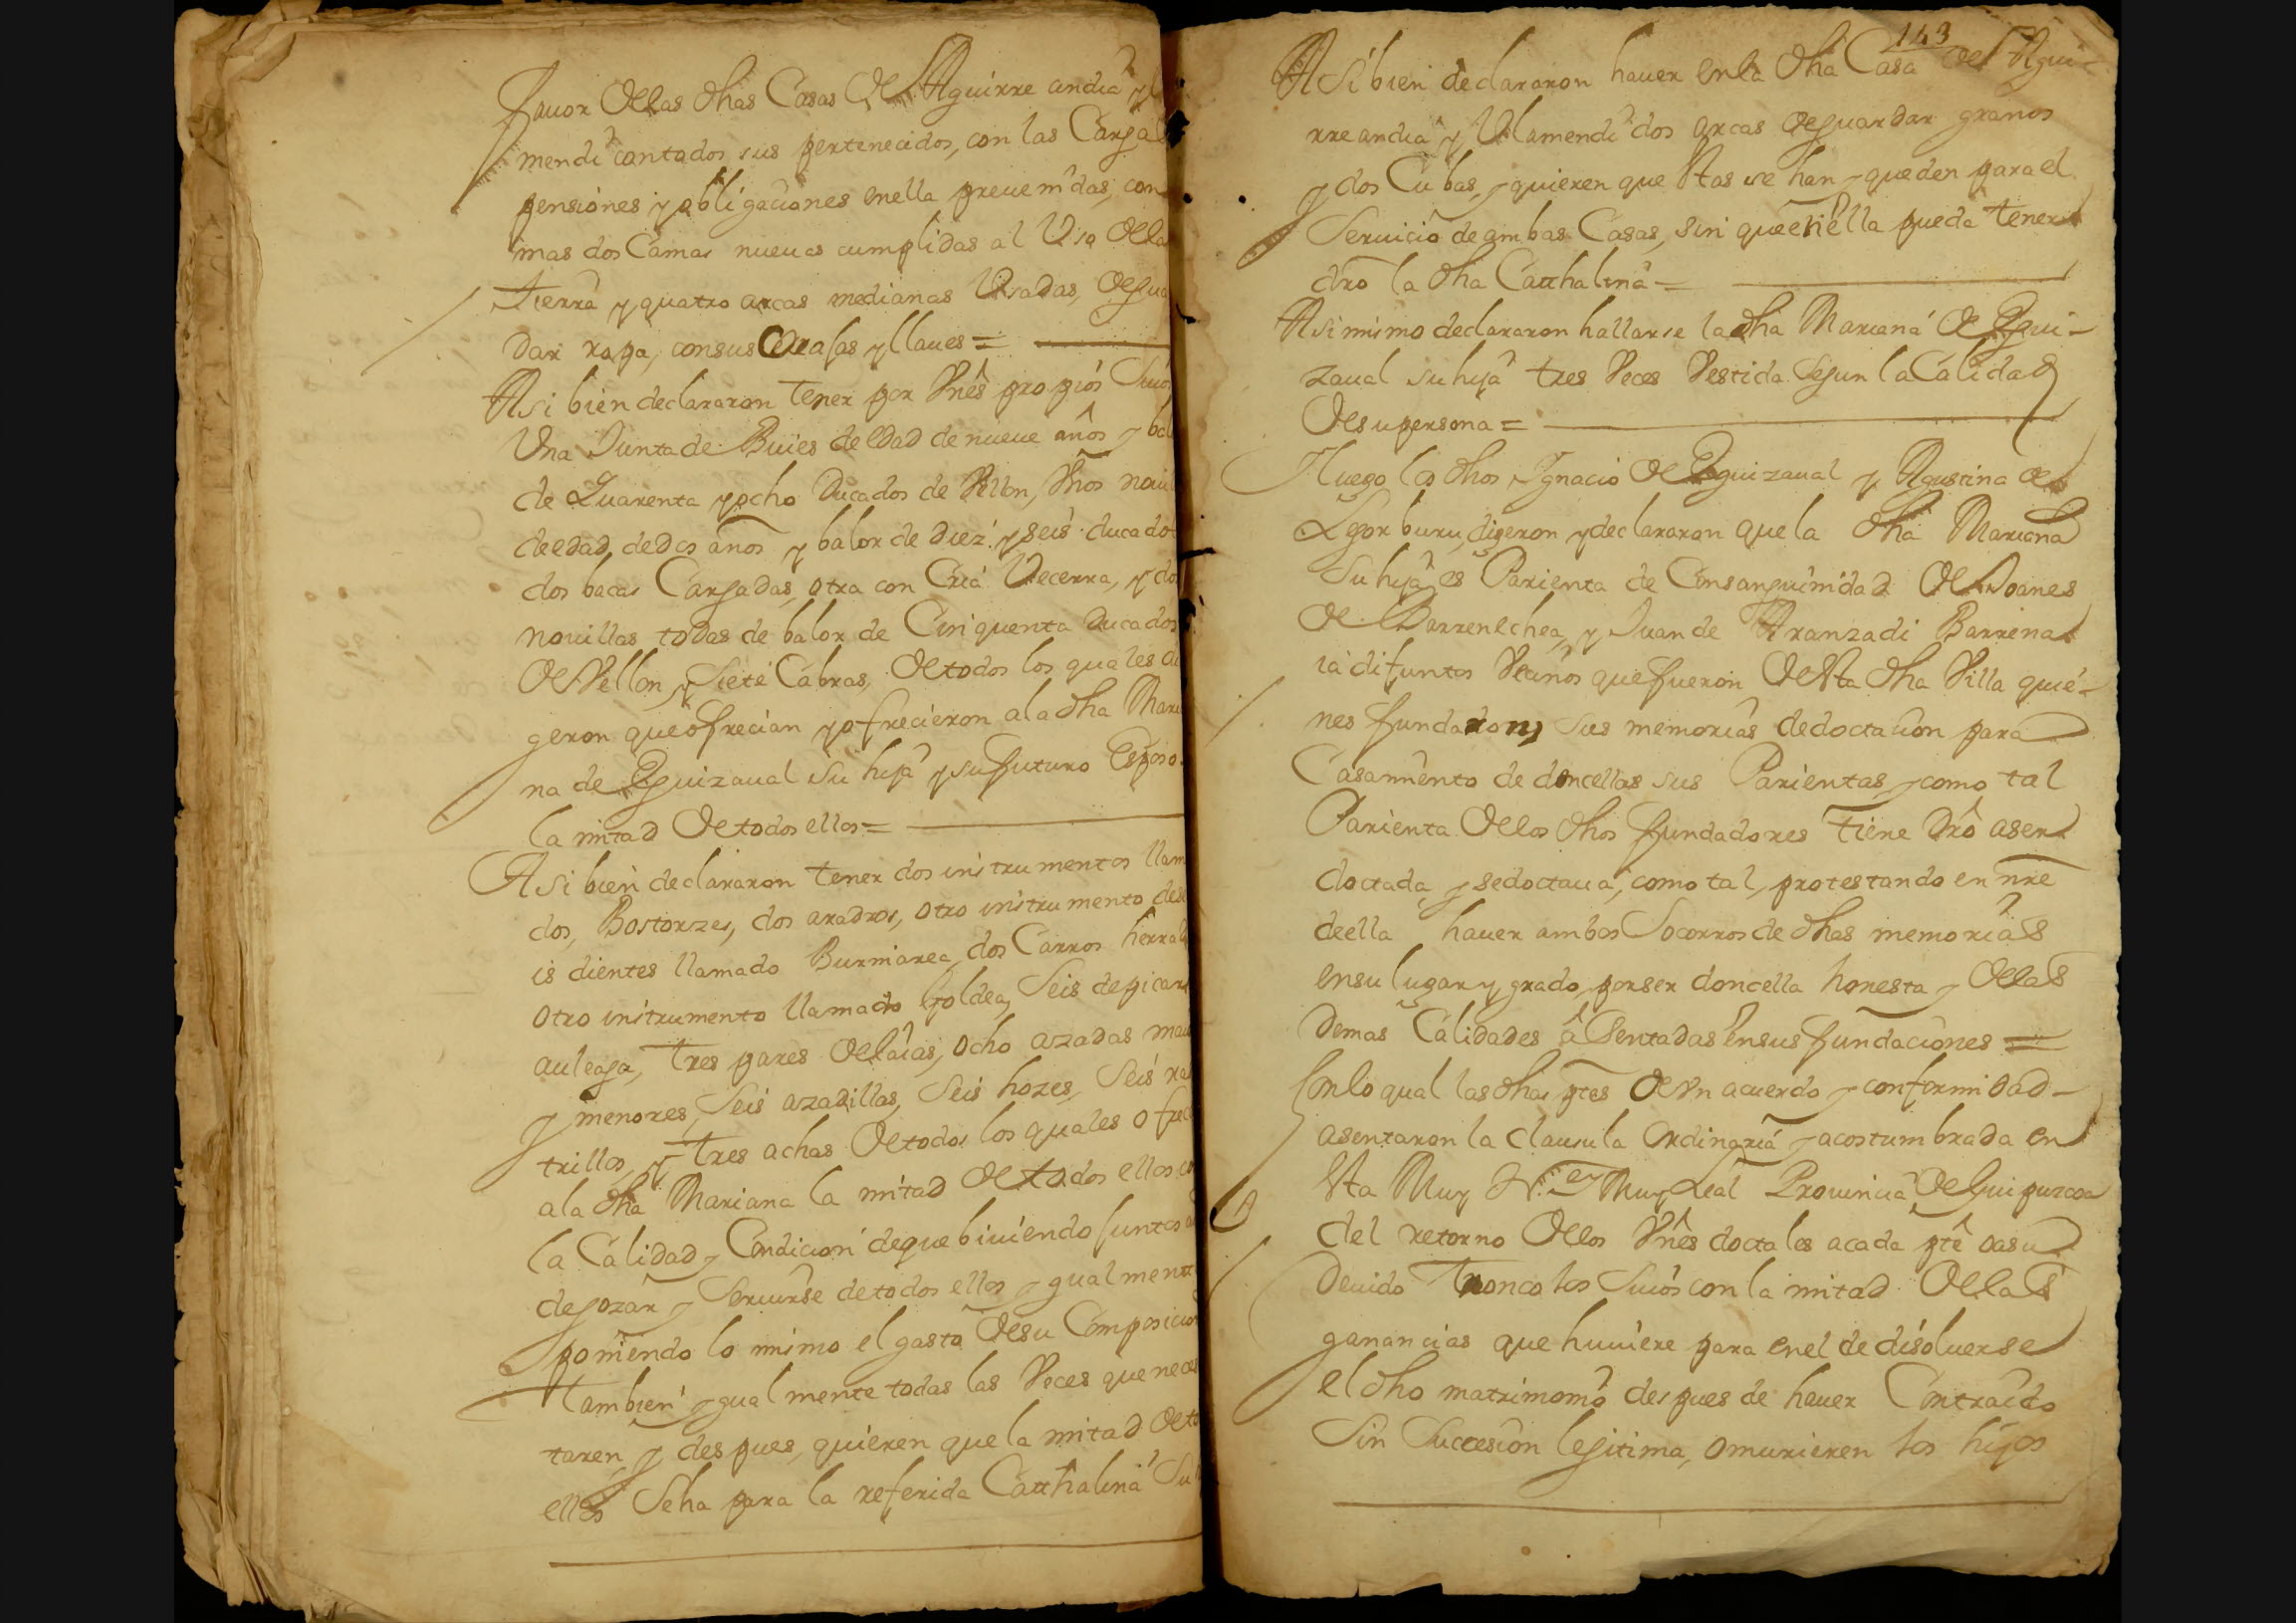 fauor de las dhas Casas de Aguirre andia y
mendi con todos sus pertenecidos, con las Carga
pensiones y obligaciones en ella preuenidas, con
mas dos Camas nueuas cumplidas al Uso de la
tierra y quatro arcas medianas Usadas, de gua
dar ropa, con sus Cerajas y llaues =
Asi bien declararon tener por Vnês propios Suios
Una Junta de Buies de edad de nueue años y bal
de Quarenta y ocho Ducados de Vellon, Vnos noui
de edad de dos años y balor de diez y seis ducado
dos bacas Cargadas, otra con Cria Vecerra, y dos
nouillas todas de balor de Cinquenta Ducados
de Vellon y Siete Cabras, de todos los quales di
geron que ofrecian y ofrecieron a la dha Mari
na de Eguizaual su hija y su futuro Esposo
la mitad de todos ellos =
Asi bien declararon tener dos instrumentos llam
dos, Bostorzes, dos aradros, otro instrumento de se
is dientes llamado Burniarea, dos Carros herra
otro instrumento llamado Goldea, Seis de picar
auleaga, tres pares de laias, ocho azadas ma
y menores, Seis azadillas, Seis hozes, Seis ras
trillos, y tres achas de todos los quales ofrec
a la dha Mariana la mitad de todos ellos
la Calidad y Condicion de que biuiendo juntos
de gozar y Seruirse de todos ellos ygualmente
poniendo lo mismo el gasto de su Composicion
tambien ygualmente todas las Veces que neces
taren, y despues, quieren que la mitad de to
ellos Se ha para la referida Catthalina Su
143
Asi bien declararon hauer en la dha Casa de Agui-
rre andia y Ulamendi dos arcas de guardar granos
y dos Cubas, y quieren que Vtas se han y queden para el
Seruicio de ambas Casas, sin que en ella pueda tener
dro la dha Catthalina =
Asi mismo declararon hallarse la dha Mariana de Egui-
zaual su hija tres Veces Vestida Segun la Calidad
de su persona =
Y luego los dhos Ygnacio de Eguizaual y Agustina de
Legorburu, digeron y declararon que la dha Mariana
su hija es Parienta de Consanguinidad de Joanes
de Barrenechea, y Juan de Aranzadi Barrena
ia difuntos Vecinos que fueron de Vta dha Villa quie-
nes fundaron, sus memorias de doctacion para
Casamiento de doncellas sus Parientas y como tal
Parienta de los dhos fundadores tiene Drô a ser
doctada, y se doctaua, como tal, protestando en nre
de ella hauer ambos Socorros de dhas memorias
en su lugar y grado, por ser doncella honesta y de las
demas Calidades asentadas en sus fundaciones =
Con lo qual las dhas ptes de Vn acuerdo y conformidad -
asentaron la clausula Ordinaria y acostumbrada en
Vta Muy N. e Muy Leal Prouincia de Guipuzcoa
del retorno de los Vnês doctales a cada ptê o a su
deuido tronco los Suios con la mitad de las
ganancias que huuiere para en el de disoluerse
el dho matrimonio despues de hauer Contraido
Sin Succesion legitima, o murieren los hijos